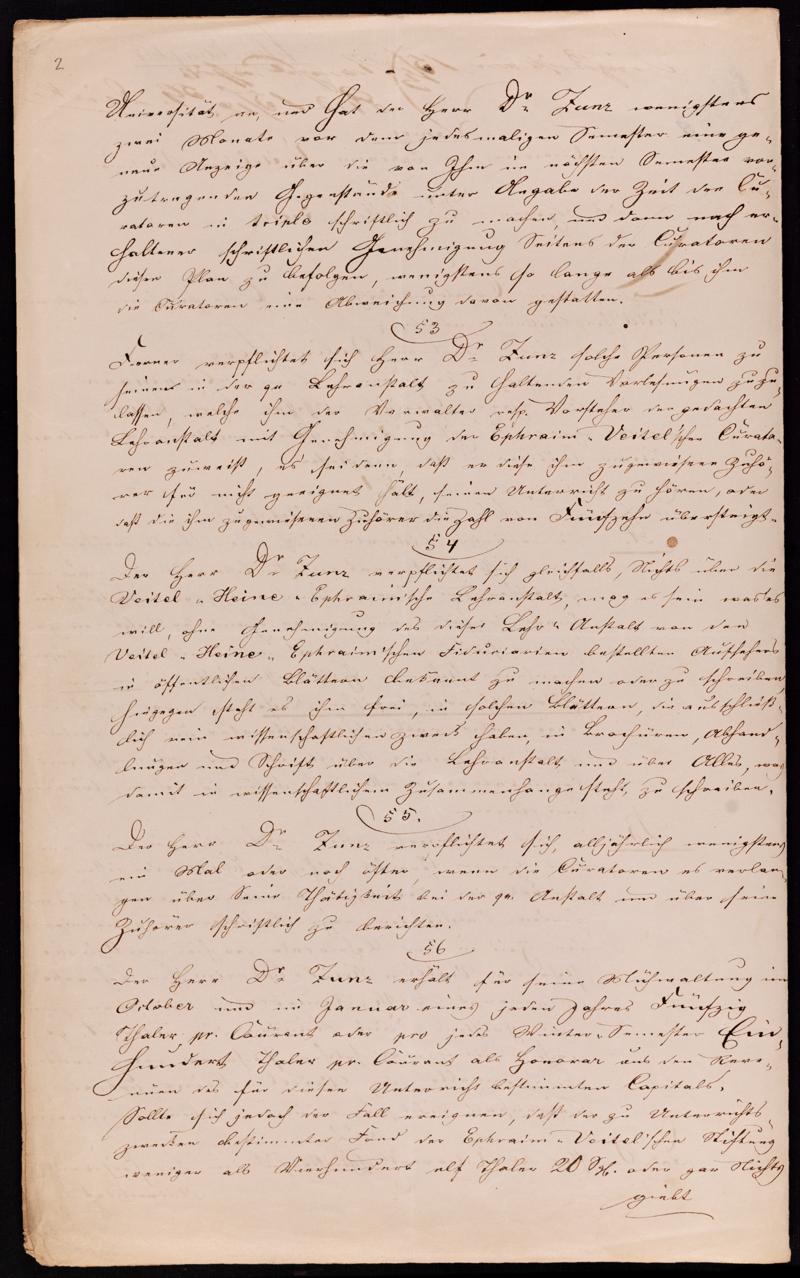 2
Universität an, und hat der Herr Dr Zunz wenigstens
zwei Monate vor dem jedesmaligen Semester eine ge-
naue Anzeige über die von Ihm im nächsten Semester vor-
zutragenden Gegenstände unter Angabe der Zeit den Cu-
ratoren in triplo schriftlich zu machen, und dann nach er-
haltener schriftlichen Genehmigung Seitens der Curatoren
diesen Plan zu befolgen, wenigstens so lange als bis ihm
die Curatoren eine Abweichung davon gestatten.
§ 3
Ferner verpflichtet sich Herr Dr Zunz solche Personen zu
seinen in der qu Lehranstalt zu haltenden Vorlesungen zuzu-
lassen, welche ihm der Verwalter resp. Vorsteher der gedachten
Lehranstalt mit Genehmigung der Ephraim-Veitel'schen Curato-
ren zuweist, es sei denn, daß er diese ihm zugewiesene Zuhö-
rer für nicht geeignet hält, seinen Unterricht zu hören, oder
daß die ihm zugewiesenen Zuhörer die Zahl von Fünfzehn übersteigt.
§ 4
Der Herr Dr Zunz verpflichtet sich gleichfalls, Nichts über die
Veitel-Heine-Ephraim'sche Lehranstalt, mag es sein was es
will, ohne Genehmigung des dieser Lehr-Anstalt von den
Veitel-Heine-Ephraim'schen Fiduciarien bestellten Aufsehers
in öffentlichen Blättern bekannt zu machen oder zu schreiben,
hingegen steht es ihm frei, in solchen Blättern, die ausschließ-
lich rein wissenschaftlichen Zweck haben, in Brochüren, Abhand-
lungen und Schrift über die Lehranstalt und über Alles, was
damit in wissenschaftlichem Zusammenhange steht, zu schreiben.
§ 5.
Der Herr Dr Zunz verpflichtet sich, alljährlich wenigstens
ein Mal oder noch öfter, wenn die Curatoren es verlan-
gen über Seine Thätigkeit bei der qu. Anstalt und über seine
Zuhörer schriftlich zu berichten.
§ 6
Der Herr Dr Zunz erhält für seine Mühwaltung im
October und im Januar eines jeden Jahres Fünfzig
Thaler pr. Courant oder pro jedes Winter-Semester Ein-
hundert Thaler pr. Courant als Honorar aus den Reve-
nüen des für diesen Unterricht bestimmten Capitals.
Sollte sich jedoch der Fall ereignen, daß der zu Unterrichts-
zwecken bestimmter Fond der Ephraim-Veitel'schen Stiftung
weniger als Vierhundert elf Thaler 20 Sgr. oder gar Nichts
giebt